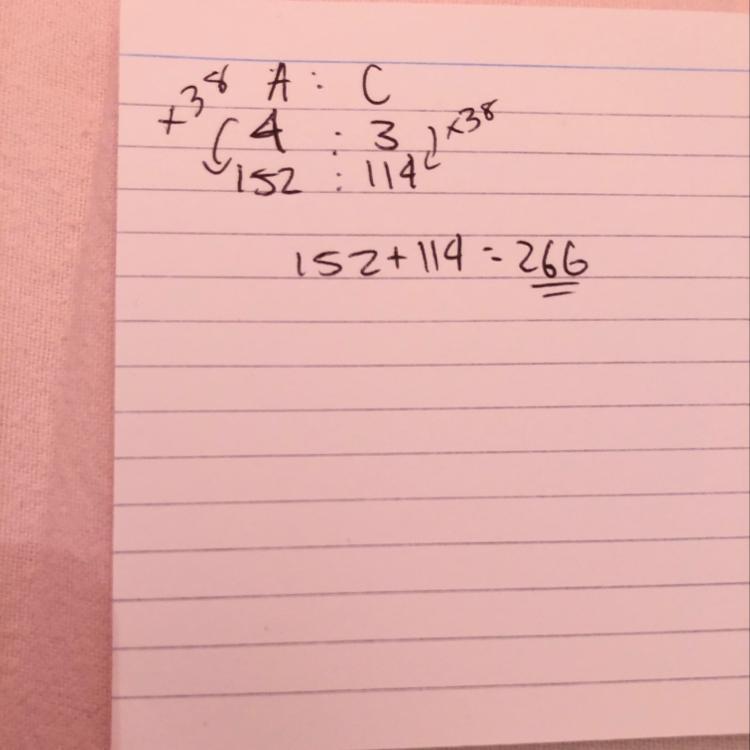 A : C
+38 4 : 3 ×38
152 : 114
152 + 114 = 266